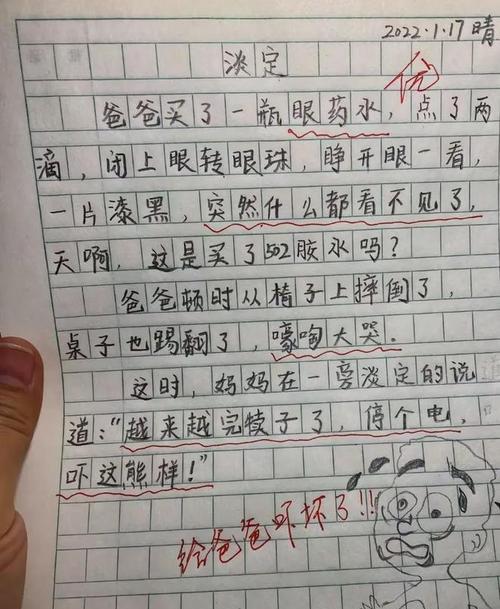 2022.1.17 晴
淡定
优
爸爸买了一瓶眼药水，点了两
滴，闭上眼转眼珠，睁开眼一看，
一片漆黑，突然什么都看不见了，
天啊，这是买了502胶水吗？
爸爸顿时从椅子上摔倒了，
桌子也踢翻了，嚎啕大哭．
这时，妈妈在一旁淡定的说
道：“越来越完犊子了，停个电，
吓这熊样！”
给爸爸吓坏了！！！